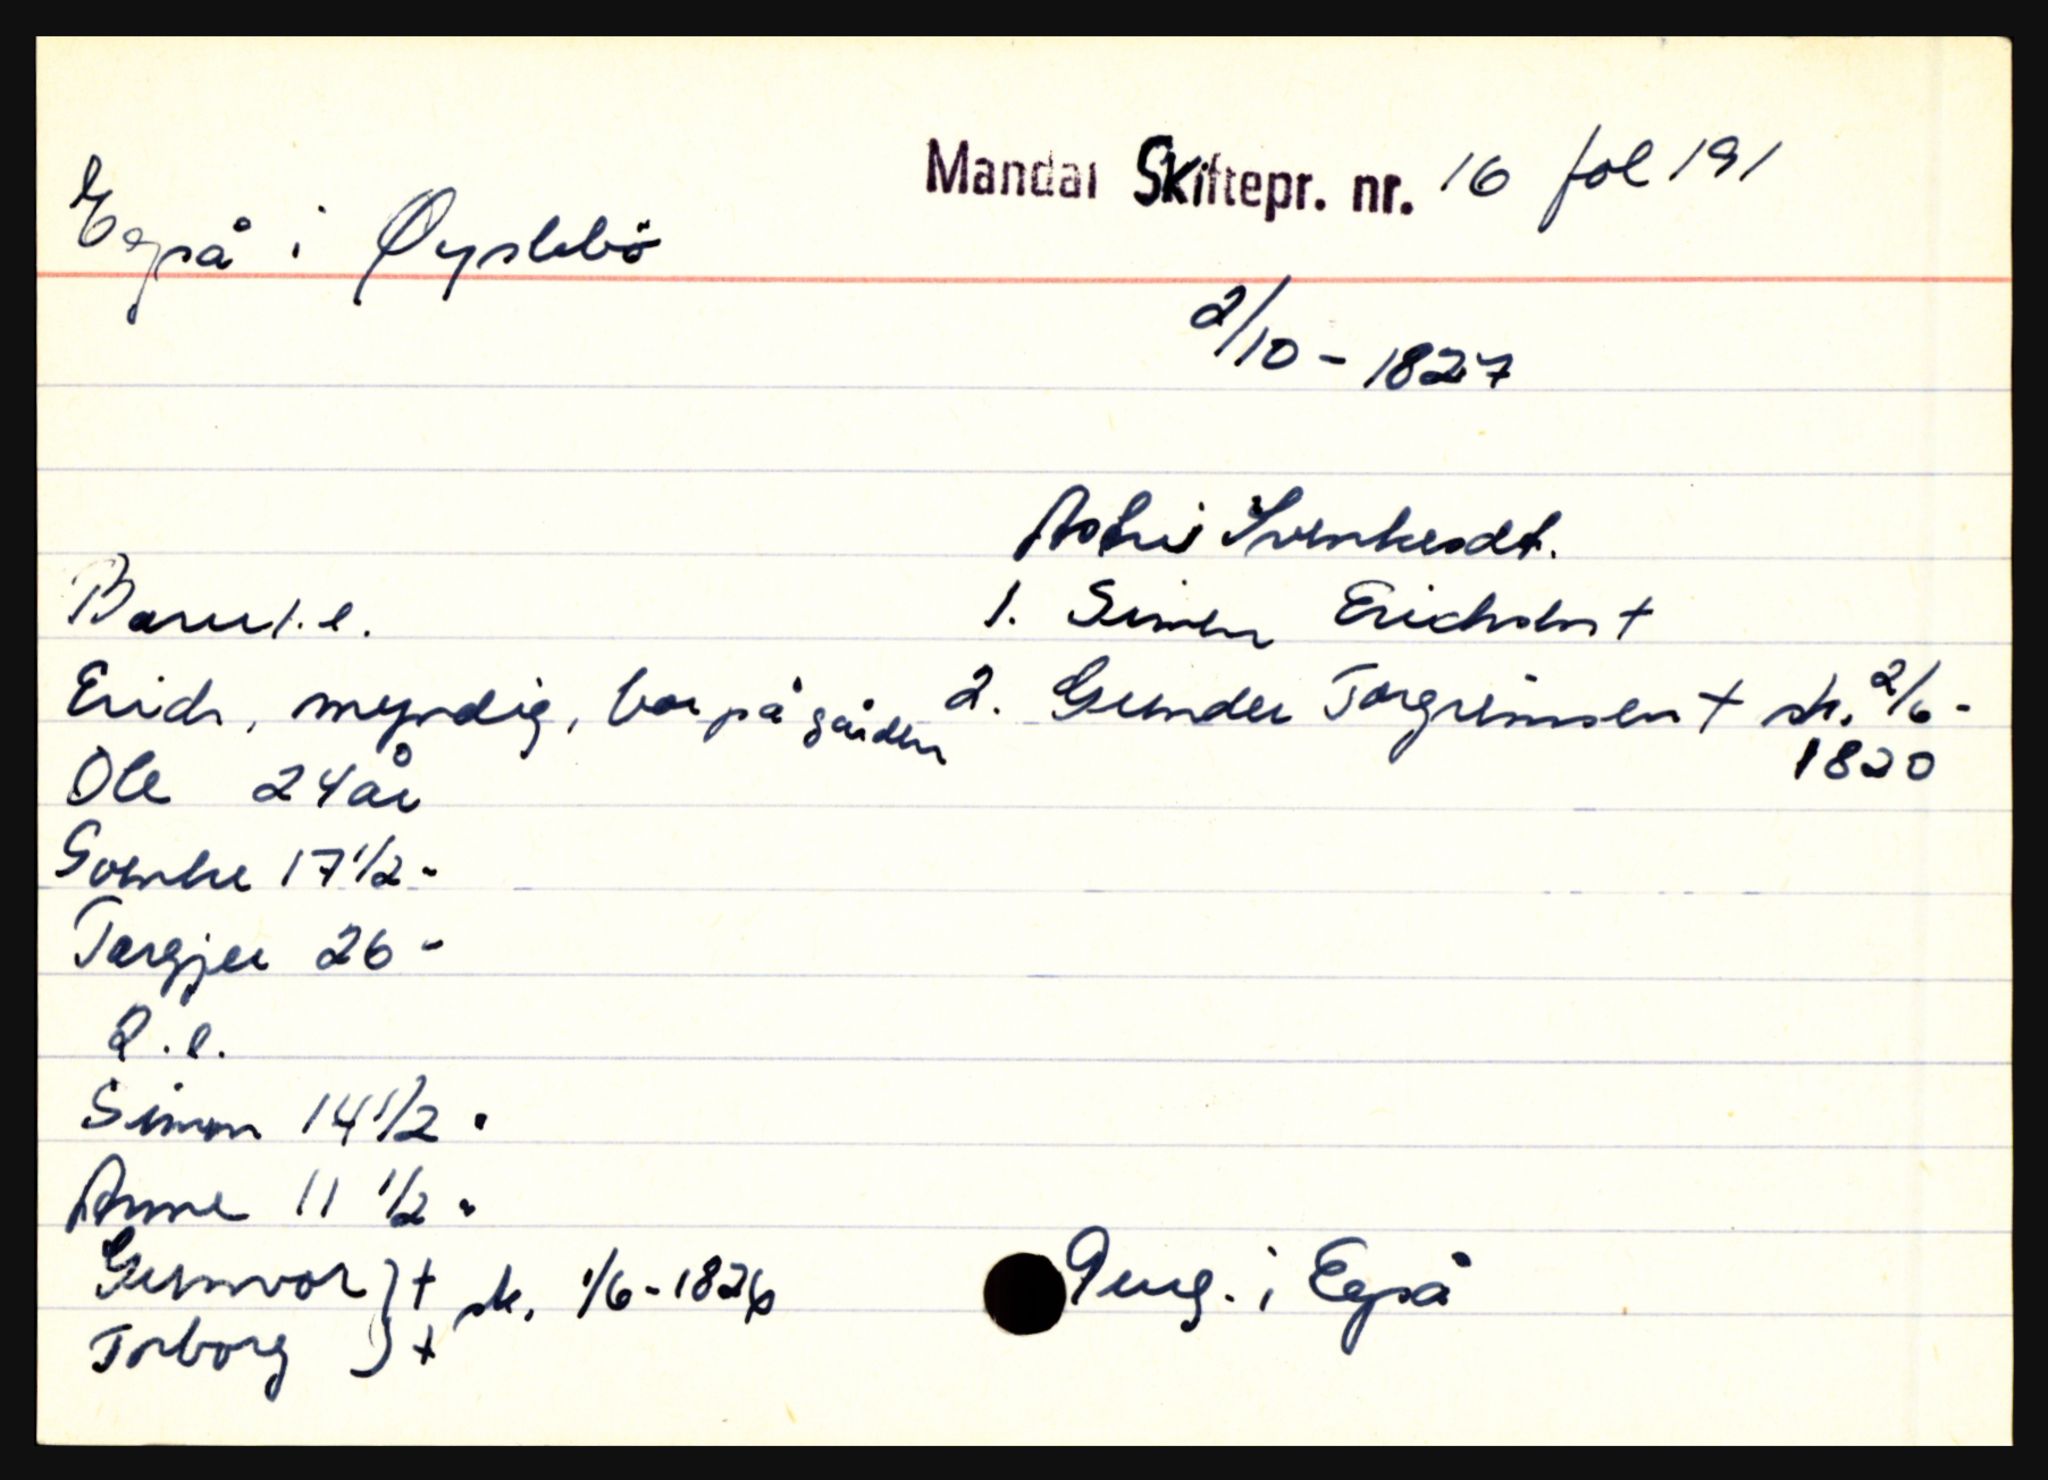 Mandal Skiftepr. nr. 16 fol 191
Egså i Øyslebö
2/10 - 1827
Astri Svenkesdt.
Barn 1. e.
1. Simen Erichsen +
Erich, myndig, bor på gården
2. Gunder Torgrimsen + sk. 2/6 -
1820
Ole 24 år
Svenke 17 1/2 "
Torgjer 26 "
2. e.
Simon 14 1/2 "
Anne 11 1/2 "
Gunvor } + sk. 1/6 - 1826
Torborg } +
Peng. i Egså